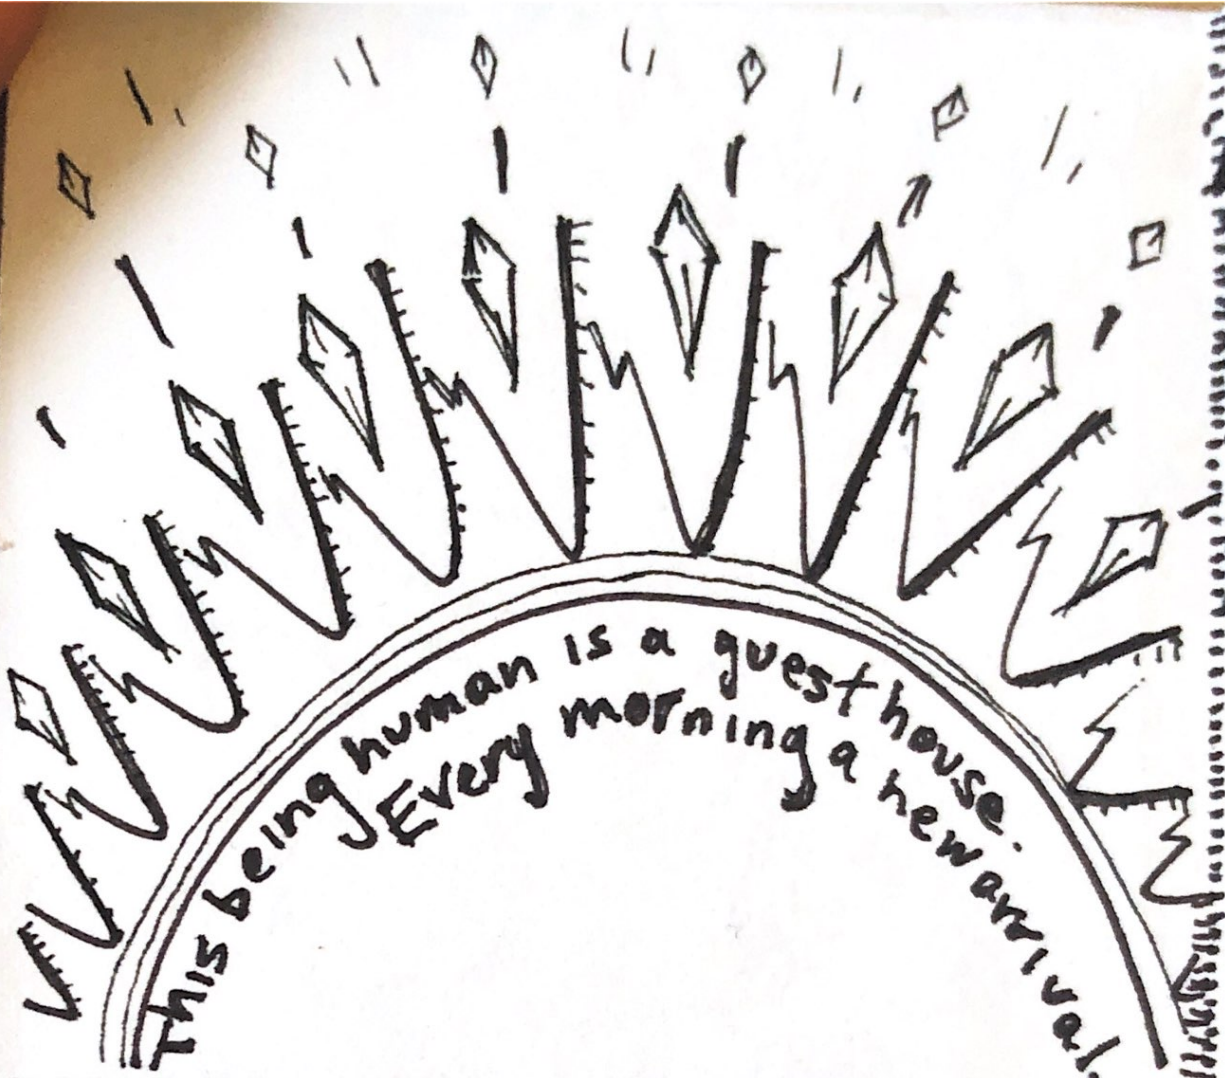 This being human is a guest house.
Every morning a new arrival.